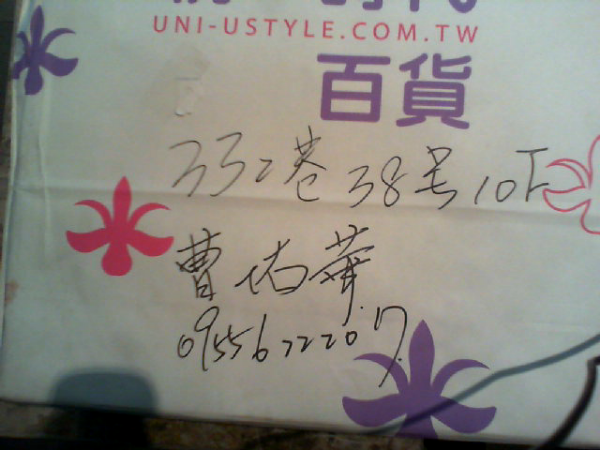 UNI-USTYLE.COM.TW
百貨
332巷38号10F
曹佑華
0955672207